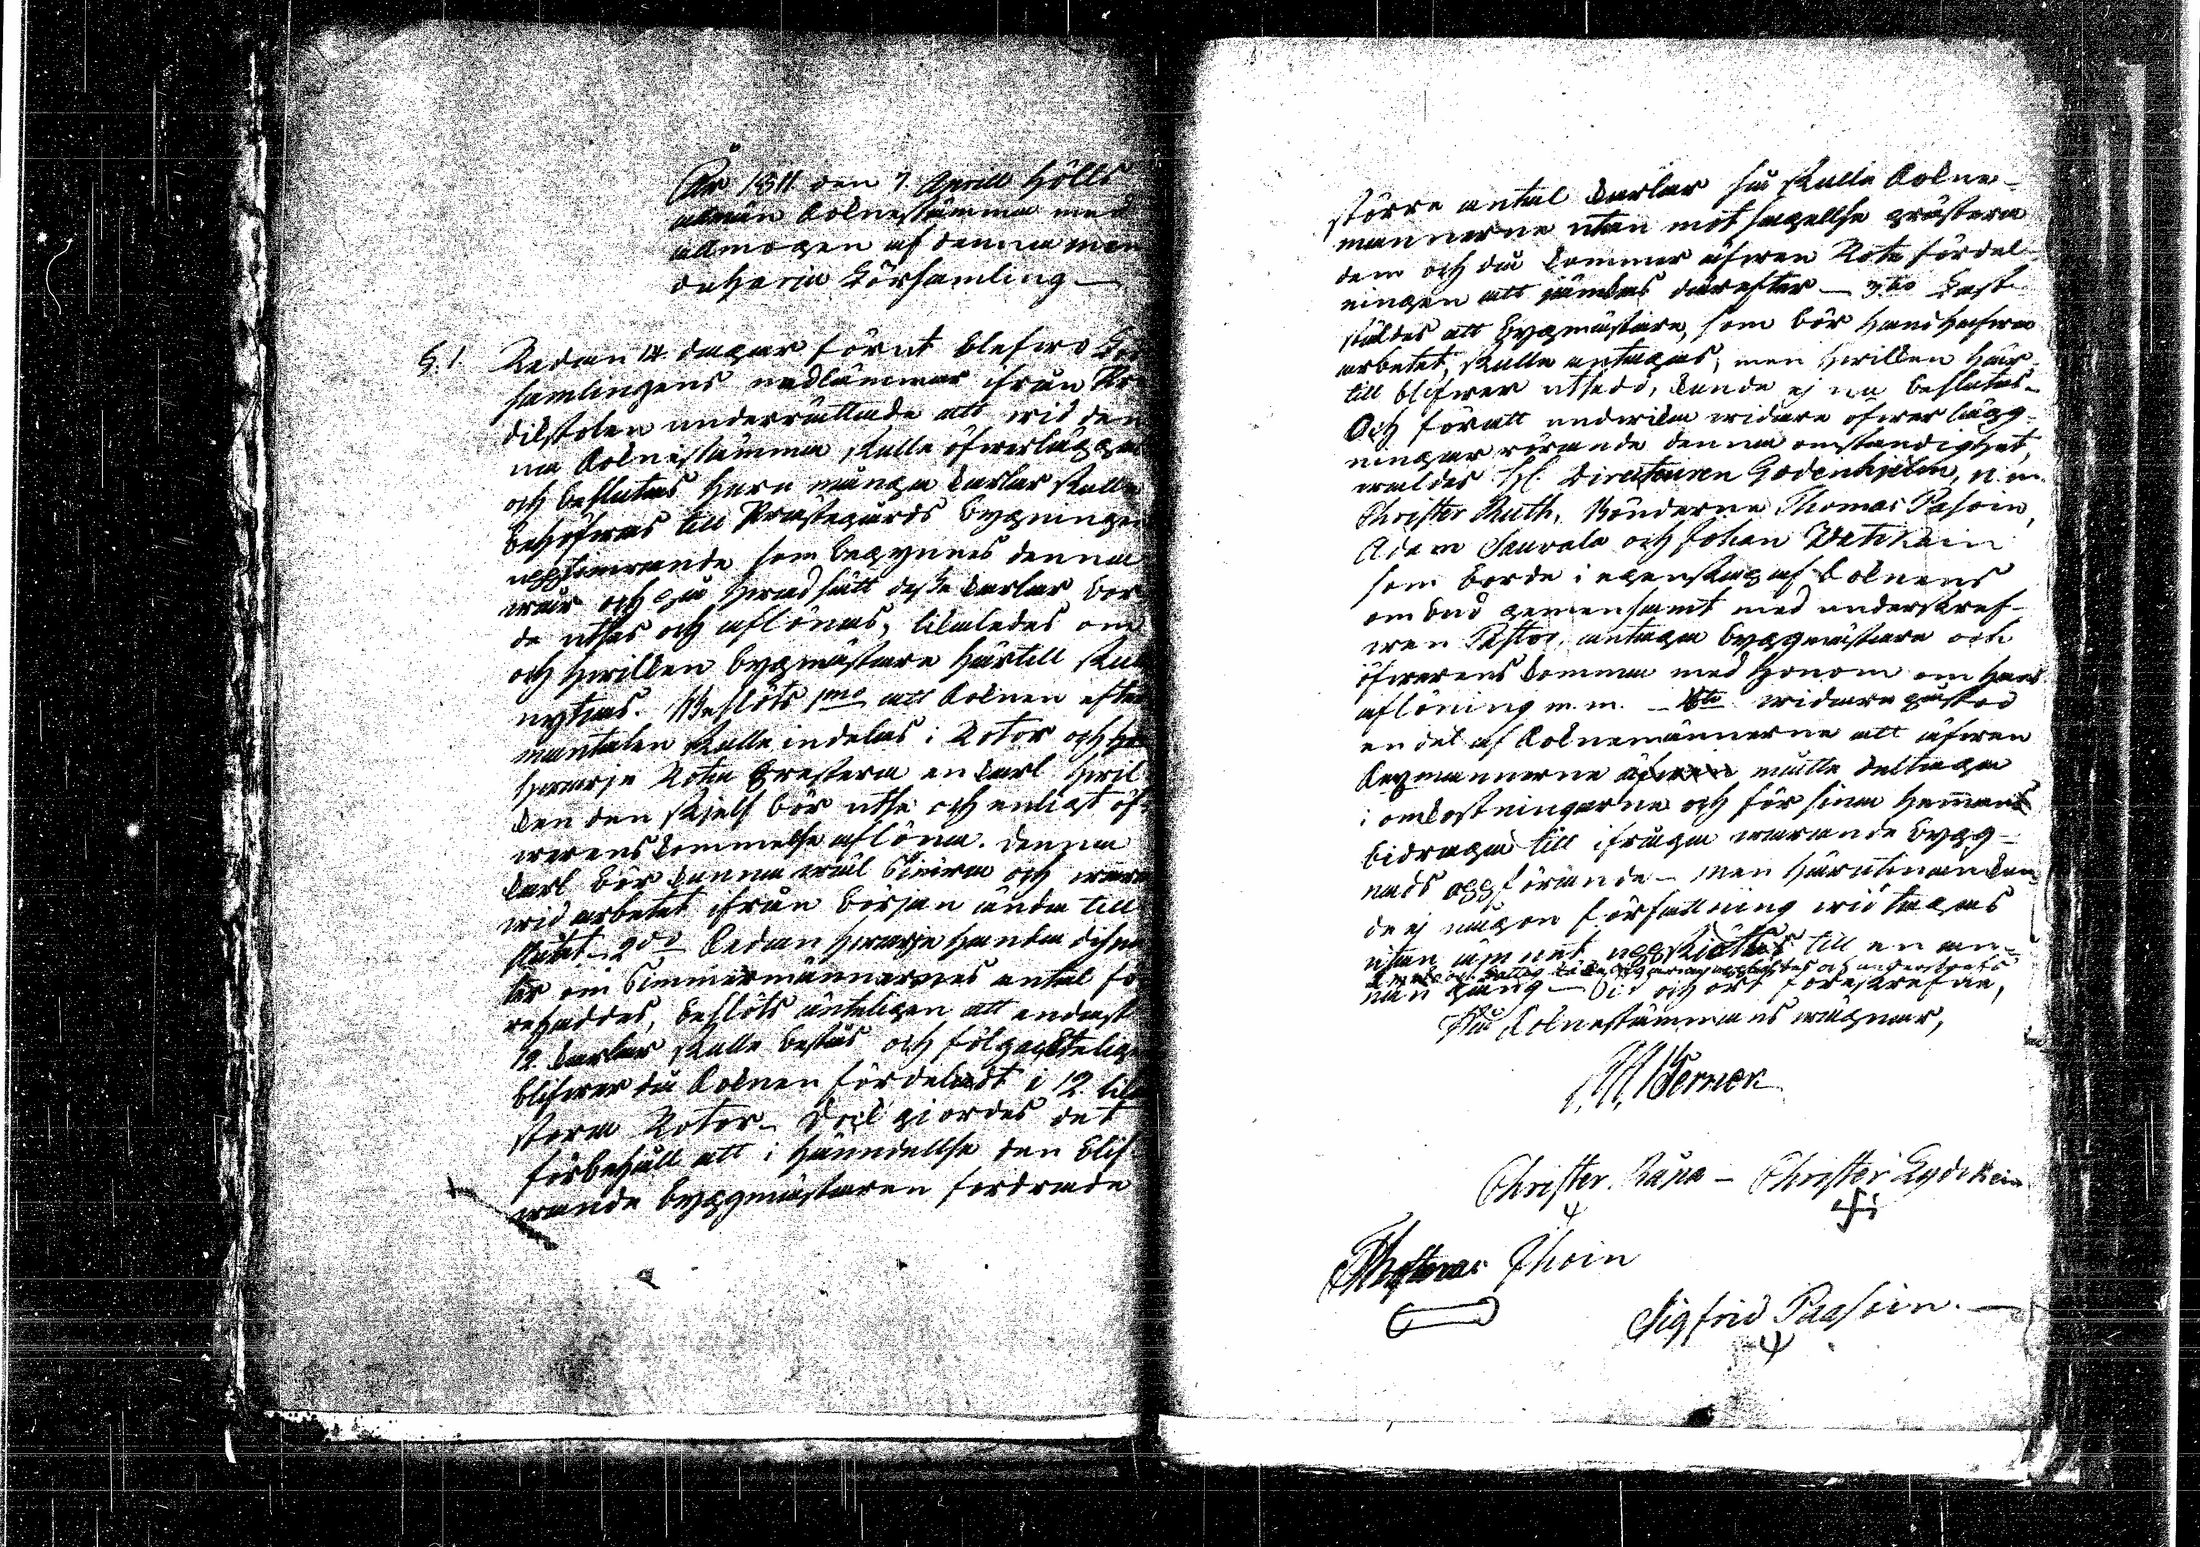 År 1811 den 7 April hölls
allmän Soknestämma med
allmogen af denna
Församling —
§. 1. Redan 14 dagar förut blefwo För
samlingens medlämmar ifrån Pre
dikstolen underrättade att wid den
na Soknestämma skulle öfwerläggas
och beslutas huru många Karlar skulle
behöfwas till Prästegårds bygningens
uppförande som begynnes denna
wår och på hwad sätt desse Karlar bor
de utses och aflönas, likaledes om
och hwilken bygmästare härtill skulle
nytjas. Beslöts 1mo att Soknen efter
mantalen skulle indelas i Rotor och
hwarje Rota prestera en Karl hwil
ken den sjelf bör utse och enligt öf
werenskommelse aflöna. Denna
Karl bör kunna wäl timra och wara
wid arbetet ifrån början ända till
slutet. 2do Sedan hwarjehanda dispu
ter om Timmermännernes antal fö
rehaddes, beslöts änteligen att endast
12 Karlar skulle bestås och följackteligen
blifwer då Soknen fördeladt i 12 lik
stora Rotor. Dock gjordes det
förbehåll att i händellse den blif
wande byggmästaren fordrade
större antal Karlar så skulle Sokne-
männerne utan motsägellse prästera
dem och då kommer äfwen Rote fördel-
ningen att jämkas därefter — 3tio Fast-
stäldes att bygmästare, som bör handhafwa
arbetet, skulle antagas, men hwilken här-
till blifwer utsedd, kunde ej nu beslutas.
Och för att undwika widare öfwerlägg-
ningar rörande denna omständighet,
waldes H. Directeuren Godenhjelm, N.m.
Christer Ruth, Bönderne Thomas Pasoin,
Adam Sauvala och Johan Wetikain
som borde i egenskap af Soknens
ombud gemensamt med underskref-
wen Pastor, antaga byggmästare och
öfwerenskomma med honom om hans
aflöning m.m. — 4to widare påstod
en del af Soknemännerne att äfwen
äfwen måtte deltaga
i omkostningarne och för sina hemman
bidraga till ifråga warande bygg-
nads uppförande — men härutinnan kun
de ej någon författning widtagas
utan ämnet uppskiöttes till en an-
nan gång — Tid och ort föreskrefne,
På Soknestämmans wägnar,
Werner
Christer Räpä — Christer Kydikein
Thomas Ihoin
Sigfrid Paasoin.